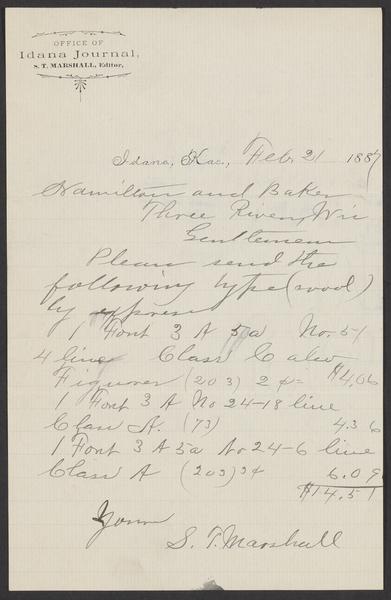 OFFICE OF
Idana Journal,
S. T. MARSHALL, Editor,
Idana, Kas., Feb. 21 1887
Hamilton and Baker
Three Rivers, Wis
Gentlemen
Please send the
following type (wood)
by express
1 Font 3 A 5a No. 51
4 line Class C also
Figures (203) 2¢= $4.06
1 Font 3 A No 24-18 line
Class A. (73) 4.36
1 Font 3 A 5a No 24-6 line
Class A (203) 3¢ 6.09
$14.51
Yours
S. T. Marshall